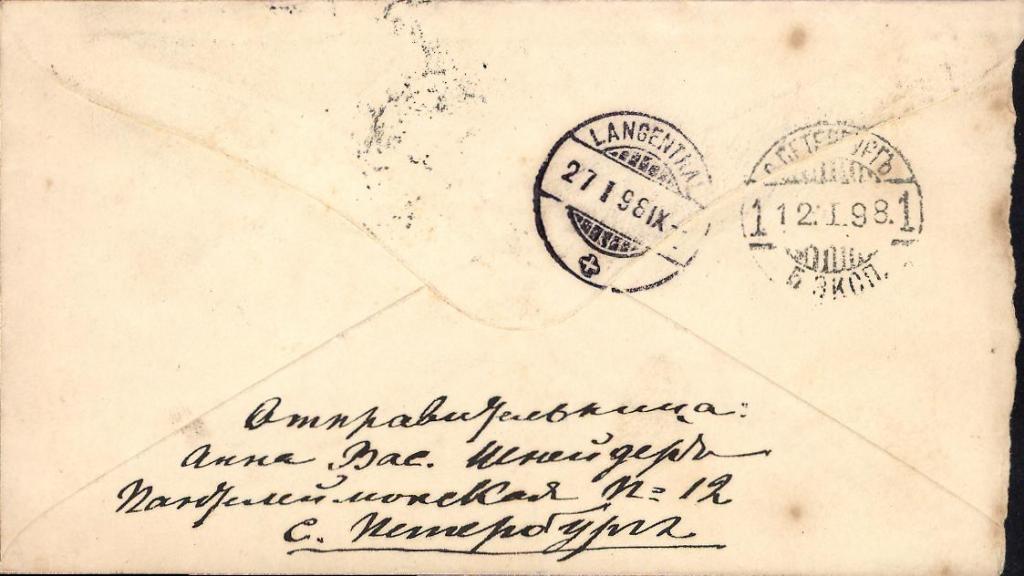 LANGENTHAL
27 I 98 IX
С.ПЕТЕРБУРГЪ
1 12.I.98. 1
6 ЭКСП.
Отправительница:
Анна Вас. Шнейдеръ
Пантелеймонская № 12
С. Петербургъ